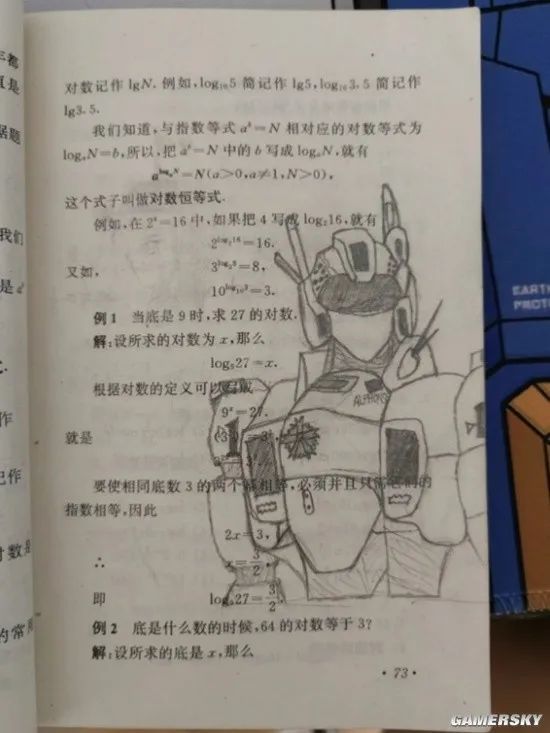 对数记作 lgN. 例如,log₁₀5 简记作 lg5,log₁₀3.5 简记作
lg3.5.
我们知道,与指数等式 aᵇ=N 相对应的对数等式为
logₐN=b,所以,把 aᵇ=N 中的 b 写成 logₐN,就有
a^{logₐN}=N(a>0,a≠1,N>0),
这个式子叫做对数恒等式.
例如,在 2⁴=16 中,如果把 4 写成 log₂16,就有
2^{log₂16}=16.
又如,
3^{log₃8}=8,
10^{log₁₀3}=3.
例1 当底是 9 时,求 27 的对数.
解:设所求的对数为 x,那么
log₉27=x.
根据对数的定义可以写成
9ˣ=27.
就是
要使相同底数 3 的两个幂相等,必须并且只需它们的
指数相等,因此
2x=3,
∴ x=3/2,
即 log₉27=3/2.
例2 底是什么数的时候,64 的对数等于 3?
解:设所求的底是 x,那么
·73·
ALPHONSE
年都
直是
据题
我们
是 a
作
记作
对数是
的常用
EARTH
PROTE
GAMERSKY